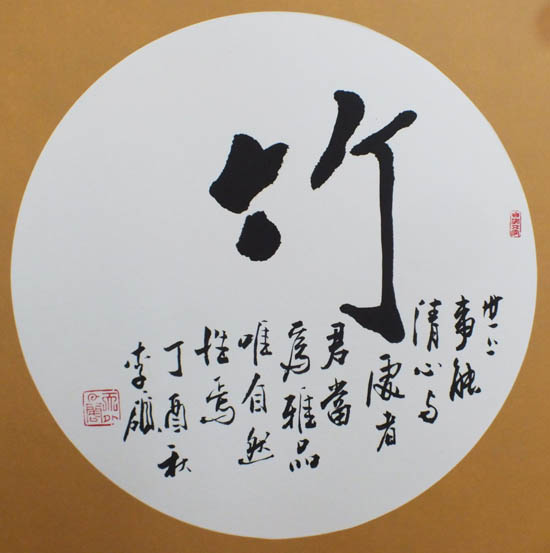 竹
世上
事能
清心与
處者
君當
為雅品
唯自然
性焉
丁酉秋
李